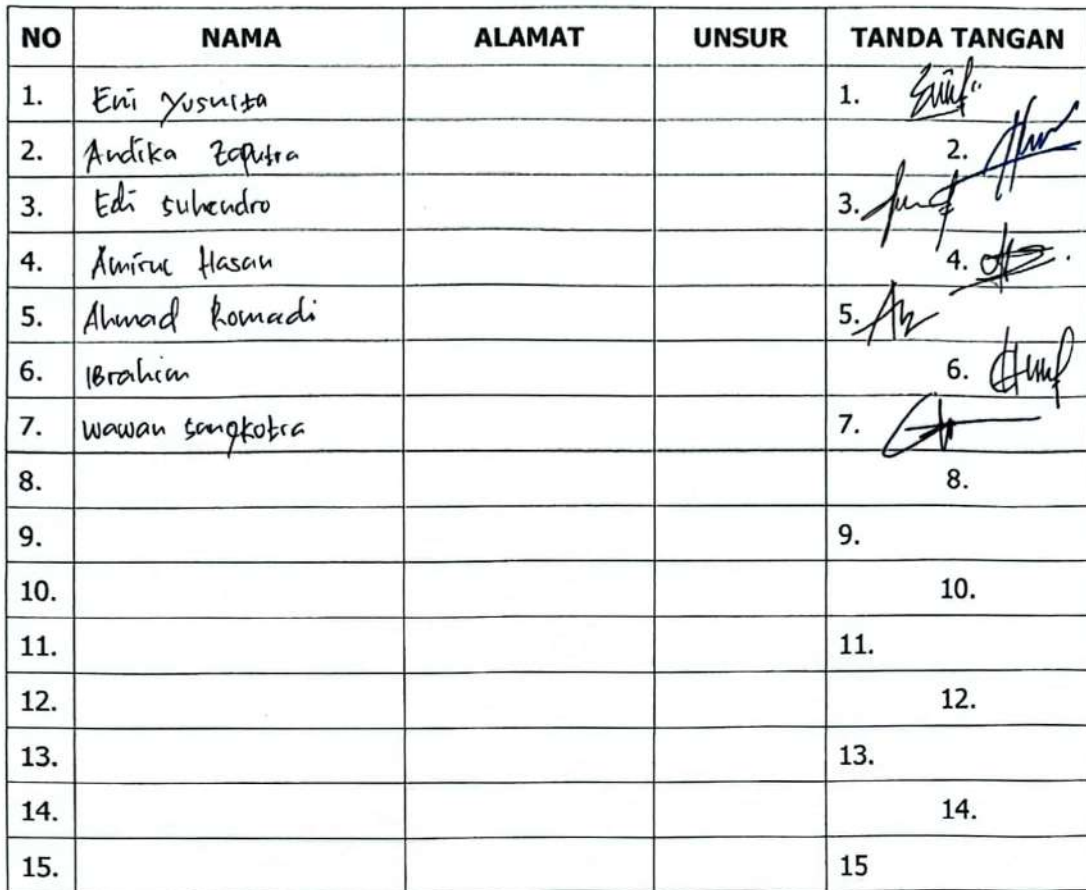 NO NAMA ALAMAT UNSUR TANDA TANGAN
1. Eni Yusnita 1.
2. Andika Zaputra 2.
3. Edi Suhendro 3.
4. Amirul Hasan 4.
5. Ahmad Romadi 5.
6. IBrahim 6.
7. wawan sangkotra 7.
8. 8.
9. 9.
10. 10.
11. 11.
12. 12.
13. 13.
14. 14.
15. 15